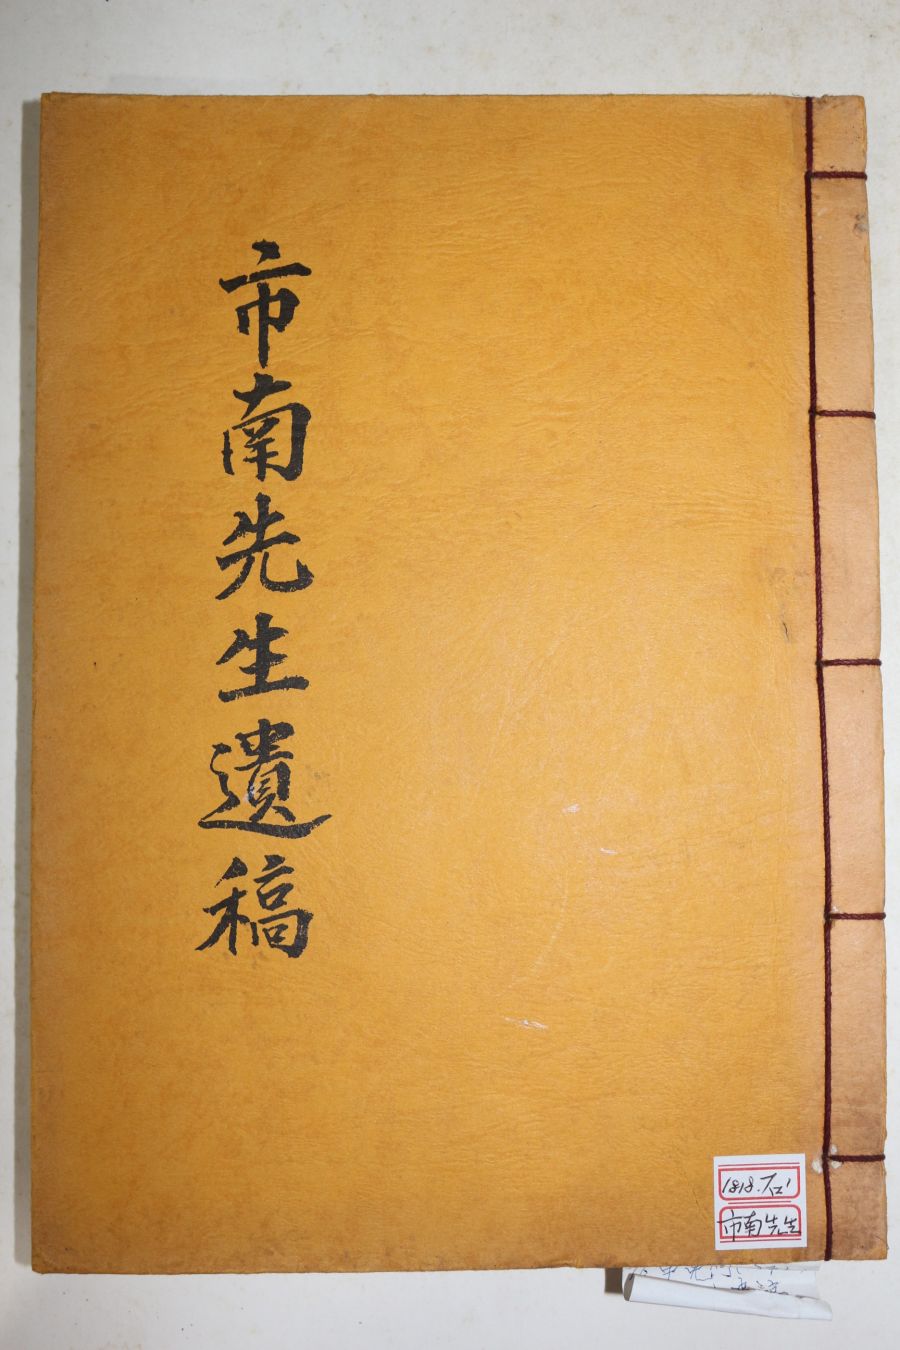 市南先生遺稿
1818.
市南先生